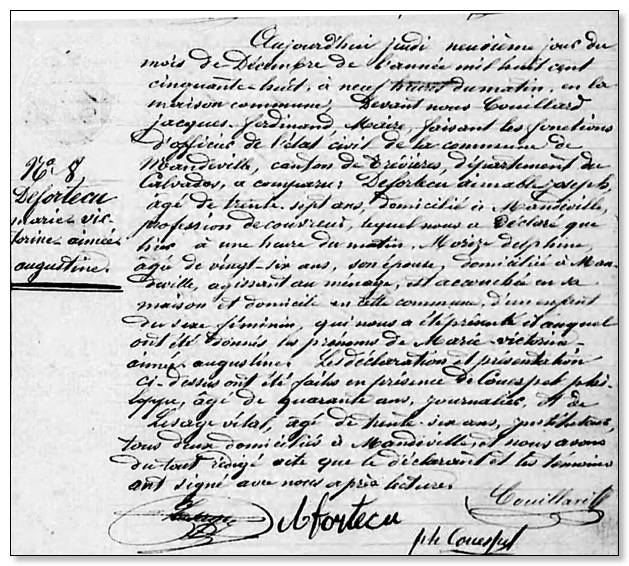 Nº 8
Defortecu
marie vic-
torine aimée
augustine.
Aujourd'hui jeudi neuvième jour du
mois de Décembre de l'année mil huit cent
cinquante-huit, à neuf heures du matin, en la
maison commune, Devant nous Couillard
jacques-ferdinand, Maire, faisant les fonctions
d'officier de l'état civil de la commune de
Mandeville, canton de Trévières, département du
Calvados, a comparu: Defortecu aimable joseph,
âgé de trente-sept ans, domicilié à Mandeville,
profession de couvreur, lequel nous a déclaré que
hier à une heure du matin, Morize delphine,
âgée de vingt-six ans, son épouse, domiciliée à Man-
deville, agissant au ménage, est accouchée en sa
maison et domicile en cette commune, d'un enfant
du sexe féminin, qui nous a été présenté et auquel
ont été donnés les prénoms de Marie victorine-
aimée augustine. Les déclaration et présentation
ci-dessus ont été faites en présence de Couespel phi-
lippe, âgé de quarante ans, journalier, et de
Lesage vital, âgé de trente-six ans, instituteur,
tous deux domiciliés à Mandeville, et nous avons
du tout rédigé acte que le déclarant et les témoins
ont signé avec nous après lecture.
Couillard
Lesage
Afortecu
ph Couespel